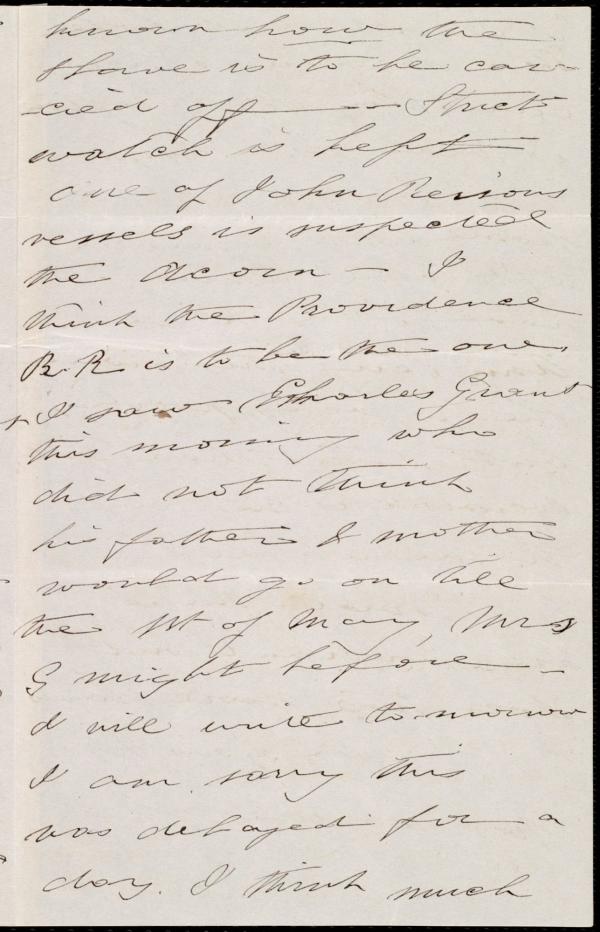 known how the
slave is to be car-
-ried off —— Strict
watch is kept
one of John Peirsons
vessels is suspected
the Acorn — I
think the Providence
R.R is to be the one,
+ I saw Charles Grant
this morning who
did not think
his father & mother
would go on till
the 1st of May, Mrs
G might before —
I will write to-morrow
I am sorry this
was delayed for a
day. I think much